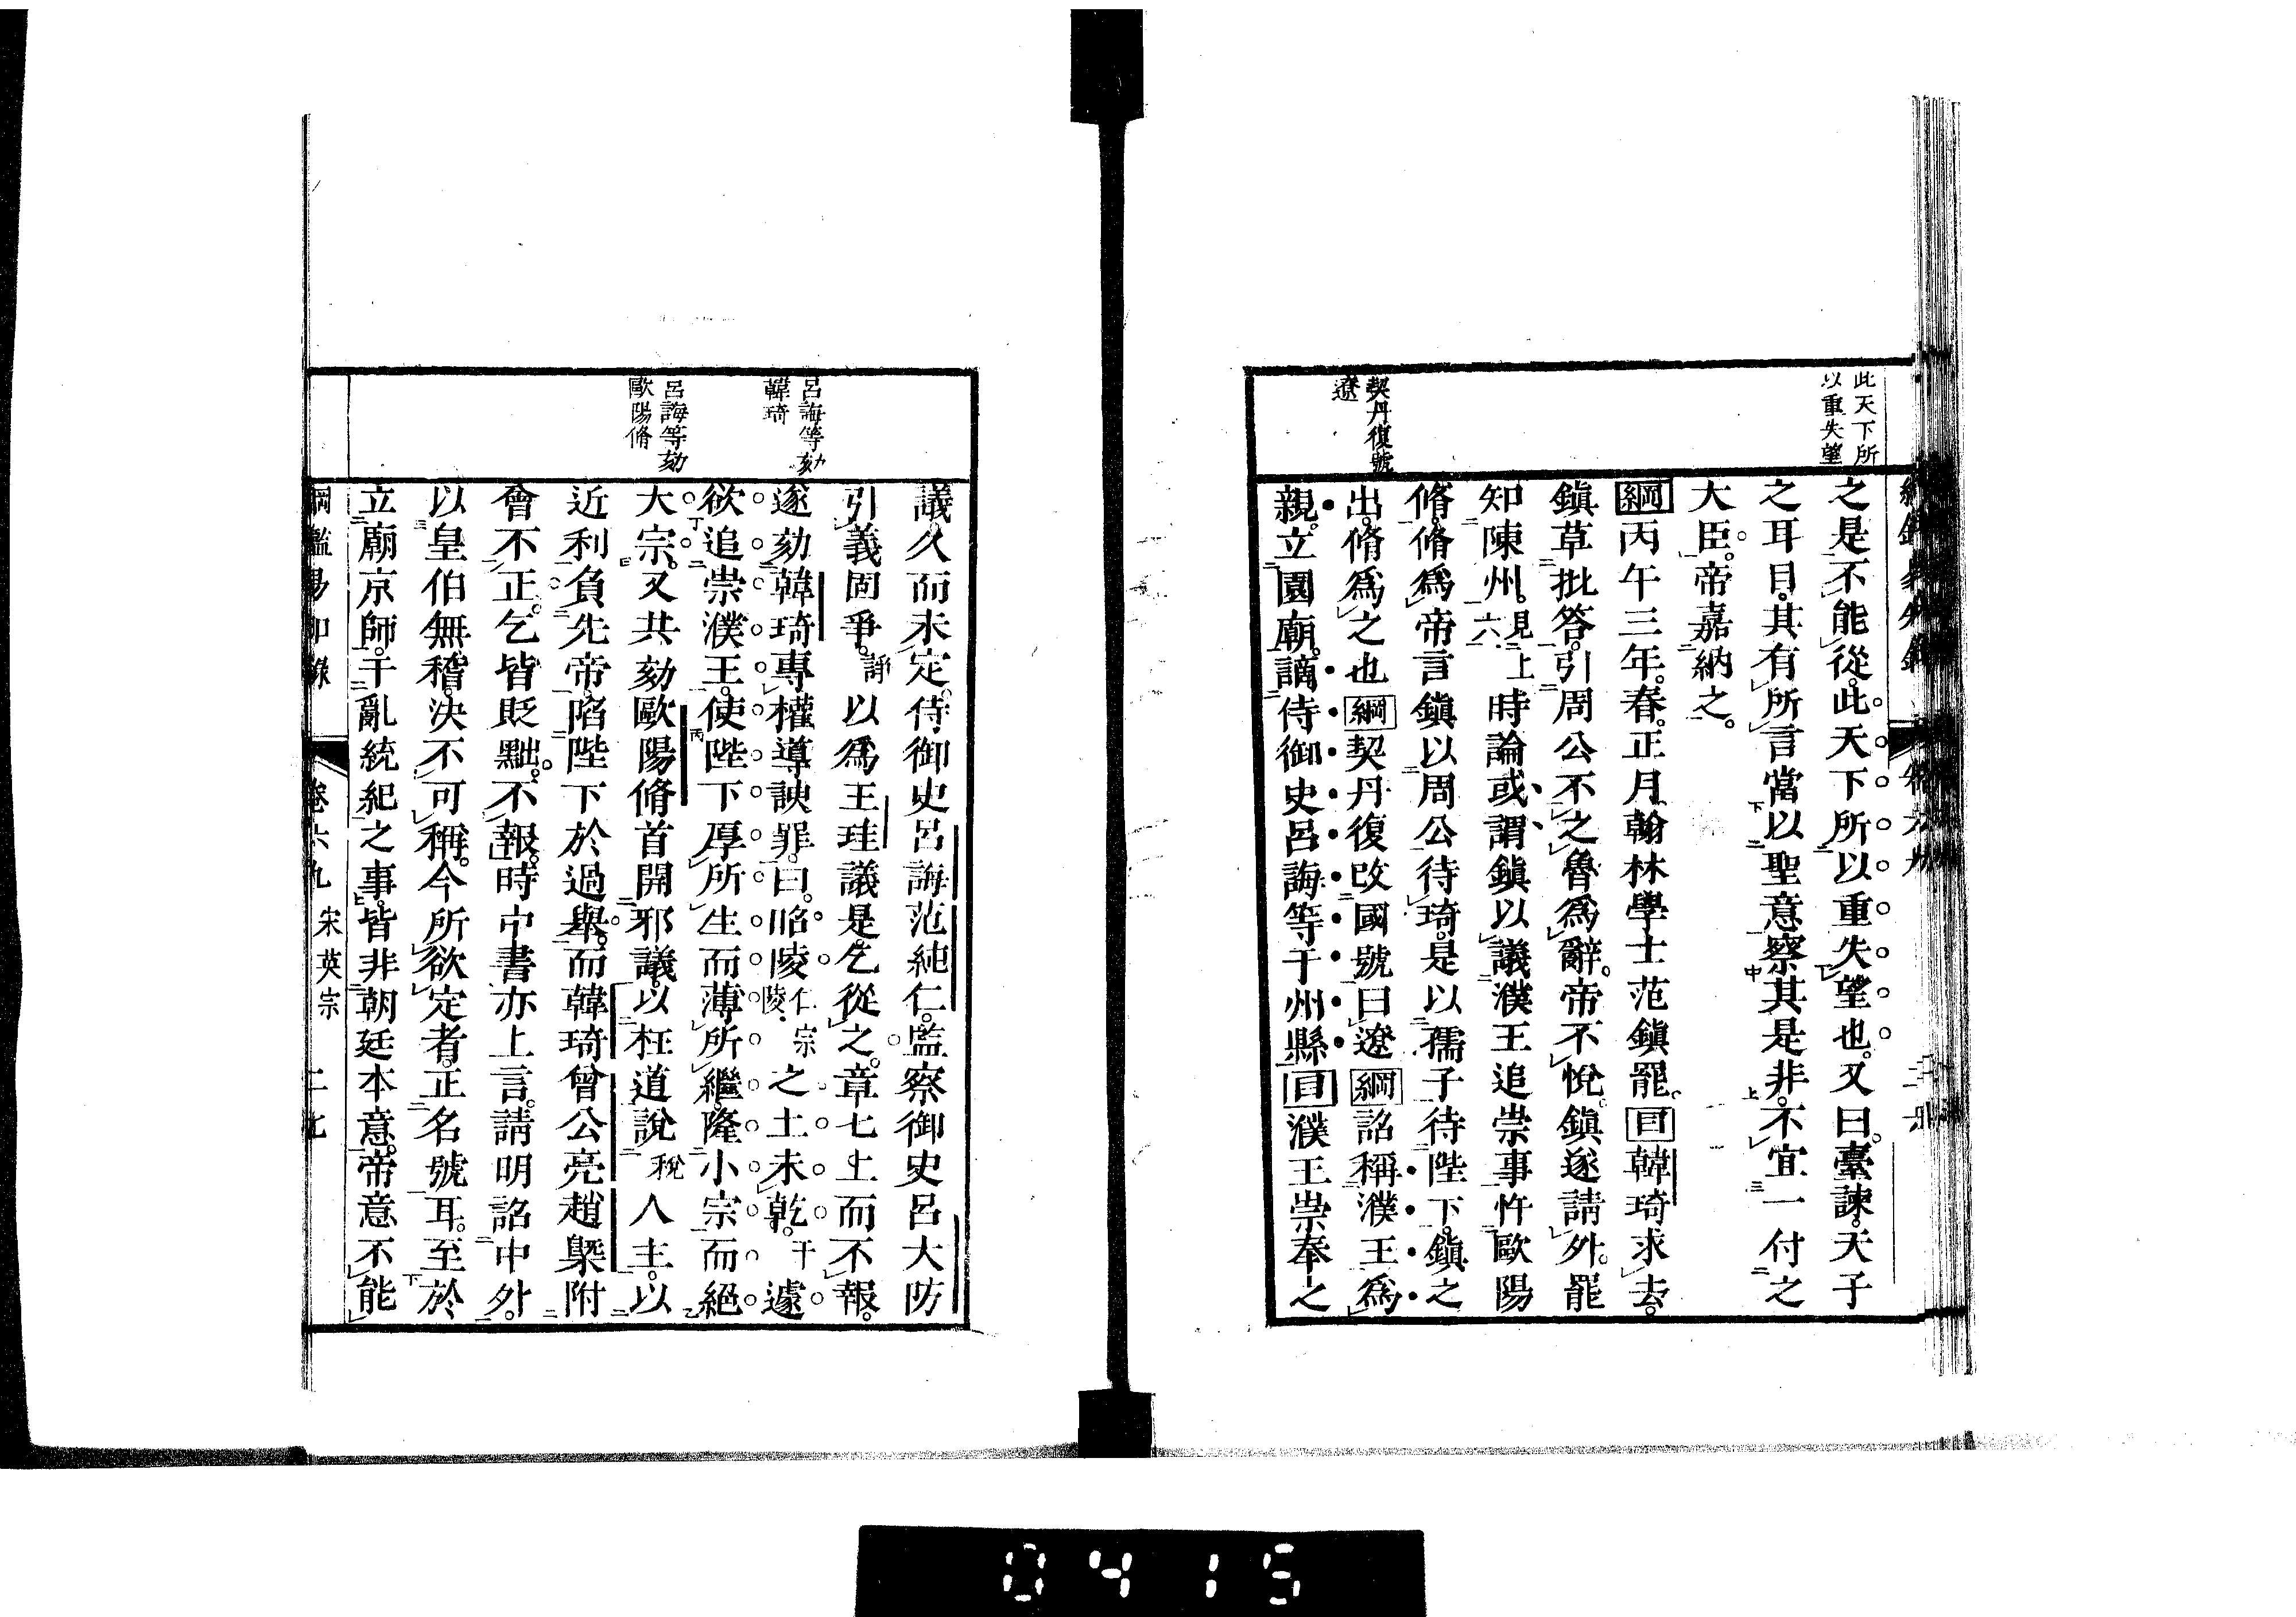 此天下所
以重失望
之是不能從。此天下所以重失望也。又曰。臺諫。天子
之耳目。其有所言當以聖意察其是非。不宜一付之
大臣。帝嘉納之。
綱丙午三年。春。正月。翰林學士范鎭罷。目韓琦求去。
鎭草批答。引周公不之魯爲辭。帝不悅。鎭遂請外。罷
知陳州。見上六 時論或謂鎭以議濮王追崇事忤歐陽
脩。脩爲帝言鎭以周公待琦。是以孺子待陛下。鎭之
契丹復號
遼
出。脩爲之也綱契丹復改國號曰遼綱詔稱濮王爲
親。立園廟。謫侍御史呂誨等于州縣目濮王崇奉之
議。久而未定。侍御史呂誨范純仁。監察御史呂大防
引義固爭。諍以爲王珪議是。乞從之。章七上而不報。
呂誨等劾
韓琦
遂劾韓琦專權導諛罪。曰。昭陵仁宗陵之土未乾。干遽
欲追崇濮王。使陛下厚所生而薄所繼。隆小宗而絕
呂誨等劾
歐陽脩
大宗。又共劾歐陽脩首開邪議。以枉道說稅人主。以
近利負先帝。陷陛下於過舉。而韓琦曾公亮趙槩附
會不正。乞皆貶黜。不報。時中書亦上言。請明詔中外。
以皇伯無稽。決不可稱。今所欲定者。正名號耳。至於
立廟京師。干亂統紀之事。皆非朝廷本意。帝意不能
綱鑑易知錄 卷六九 宋英宗 二七
0415